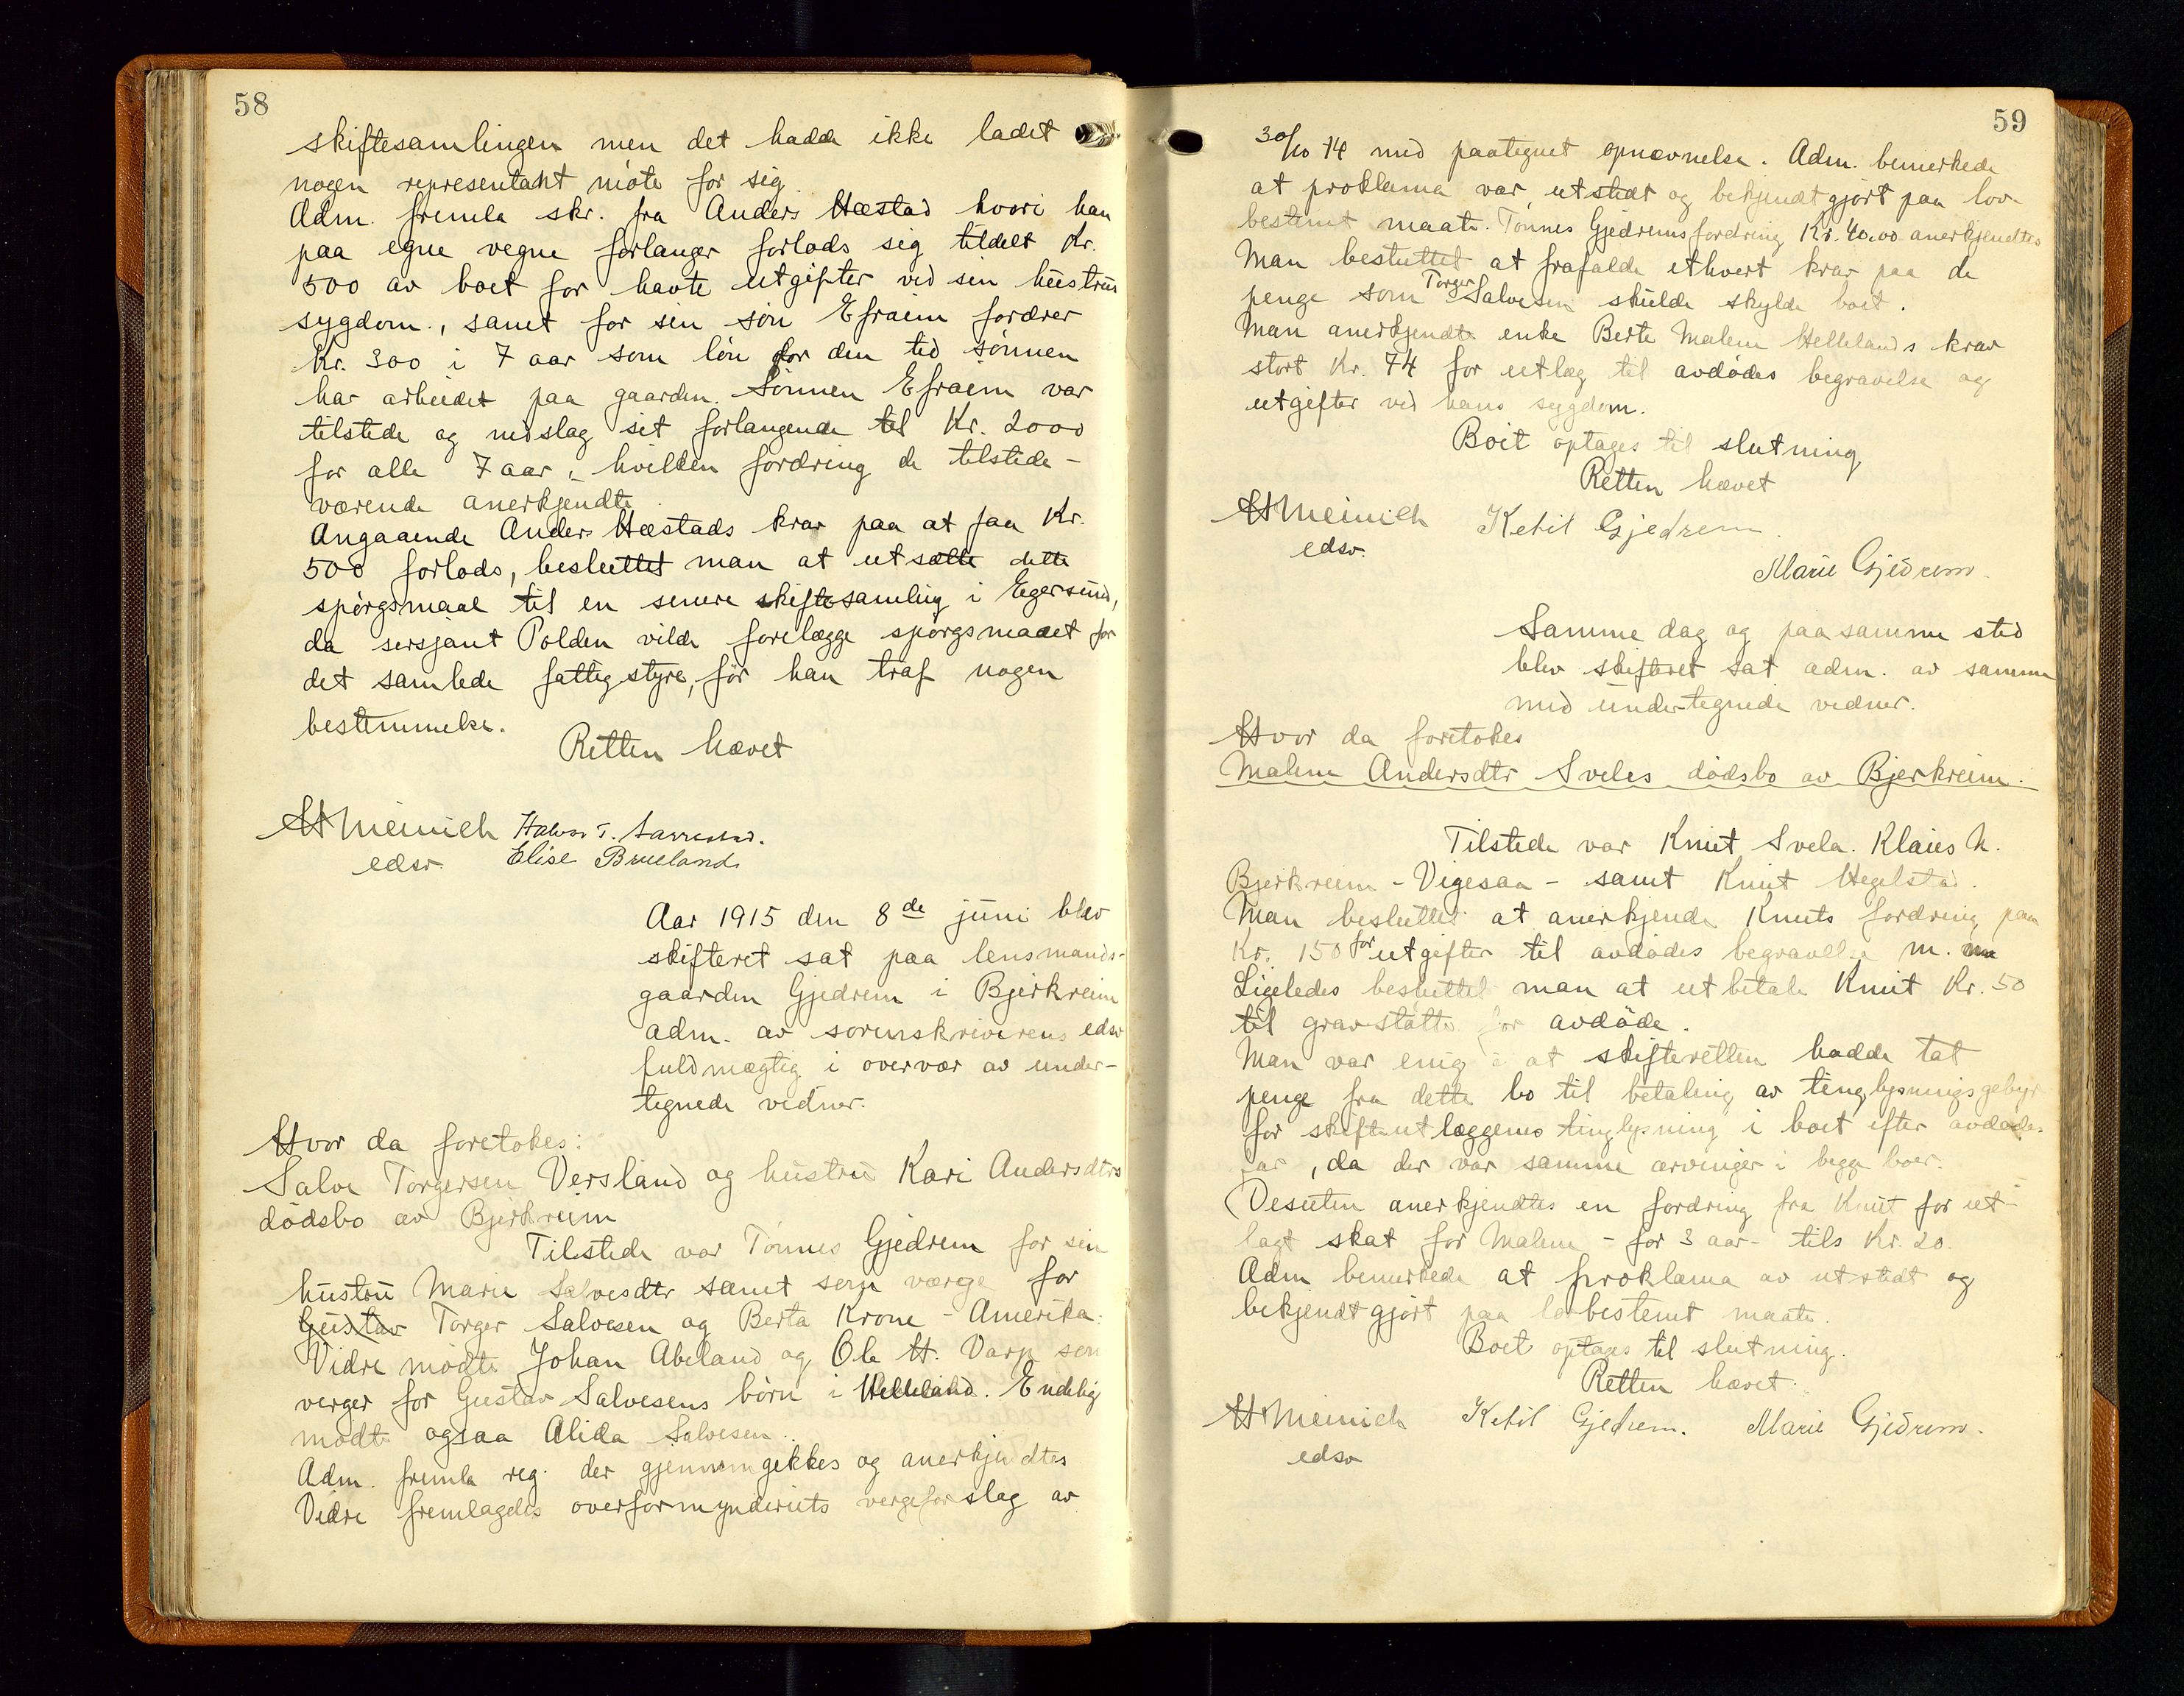 58
skiftesamlingen men det hadde ikke ladet
nogen representant møte for sig.
Adm. fremla skr. fra Anders Hæstad hvori han
paa egne vegne forlanger forlods sig tildelt Kr.
500 av boet for havte utgifter ved sin hustrus
sygdom., samt for sin søn Efraim fordrer
Kr. 300 i 7 aar som løn for den tid sønnen
har arbeidet paa gaarden. Sønnen Efraim var
tilstede og nedslag sit forlangende til Kr. 2000
for alle 7 aar, hvilken fordring de tilstede-
værende anerkjendte
Angaaende Anders Hæstads krav paa at faa Kr.
500 forlods, besluttet man at utsætte dette
spørgsmaal til en senere skiftesamling i Egersund,
da sersjant Polden vilde forelægge spørgsmaalet for
det samlede fattigstyre, før han traf nogen
bestemmelse.
Retten hævet
H Meinich Halvor T.
edsv. Elise Brueland
Aar 1915 den 8de juni blev
skifteret sat paa lensmands-
gaarden Gjedrem i Bjerkreim
adm. av sorenskriverens edsv
fuldmægtig i overvær av under-
tegnede vidner.
Hvor da foretokes:
Salve Torgersen Versland og hustru Kari Andersdtrs
dødsbo av Bjerkreim
Tilstede var Tønnes Gjedrem for sin
hustru Marie Salvesdtr samt som værge for
Gustav Torger Salvesen og Berta Krone - Amerika.
Vidre mødte Johan Abeland og Ole H. Varp som
verger for Gustav Salvesens børn i Helleland. Endelig
mødte ogsaa Alida Salvesen.
Adm. fremla reg. der gjennemgikkes og anerkjendtes
Vidre fremlagdes overformynderiets vergeforslag av
59
30/10 14 med paategnet opnævnelse. Adm. bemerkede
at proklama var utstedt og bekjendtgjort paa lov-
bestemt maate. Tønnes Gjedrems fordring Kr. 40.00 anerkjendtes
Man besluttet at frafalde ethvert krav paa de
penge som Torger Salvesen skulde skylde boet.
Man anerkjendte enke Berte Malene Hellelands krav
stort Kr. 74 for utlæg til avdødes begravelse og
utgifter ved hans sygdom.
Boet optages til slutning,
Retten hævet
H Meinich Ketil Gjedrem.
edsv. Marie Gjedrem.
Samme dag og paa samme sted
blev skifteret sat adm. av samme
med undertegnede vidner.
Hvor da foretokes
Malene Andersdtr Sveles dødsbo av Bjerkreim.
Tilstede var Knut Svela. Klaus N.
Bjerkreim - Vigesaa - samt Knut Hegelstad.
Man besluttet at anerkjende Knuts fordring paa
Kr. 150 for utgifter til avdødes begravelse m. m
Ligeledes besluttet man at utbetale Knut Kr. 50
til gravstøtte for avdøde.
Man var enig i at skifteretten hadde tat
penge fra dette bo til betaling av tinglysningsgebyr
for skifteutlæggenes tinglysning i boet efter avdødes
far, da der var samme arvinger i begge boer.
Desuten anerkjendtes en fordring fra Knut for ut-
lagt skat for Malene - for 3 aar - tils Kr. 20
Adm bemerkede at proklama av utstedt og
bekjendtgjort paa lovbestemt maate.
Boet optages til slutning.
Retten hævet.
H Meinich Ketil Gjedrem. Marie Gjedrem.
edsv